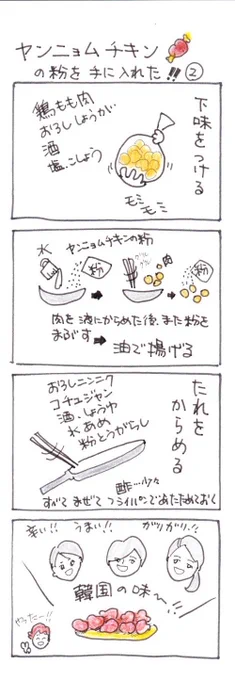 ヤンニョムチキン
の粉を手に入れた!! ②
下味をつける
鶏もも肉
おろししょうがい
酒
塩、こしょう
モミ
モミ
水
ヤンニョムチキンの粉
粉
肉
粉
肉を液にからめた後、また粉を
まぶす
➡ 油で揚げる
たれを
からめる
おろしニンニク
コチュジャン
酒、しょうゆ
水あめ
粉とうがらし
酢…少々
すべてまぜてフライパンであたためておく
辛い!!
うまい!!
ガリガリ!!
韓国の味〜!!
やったー!!